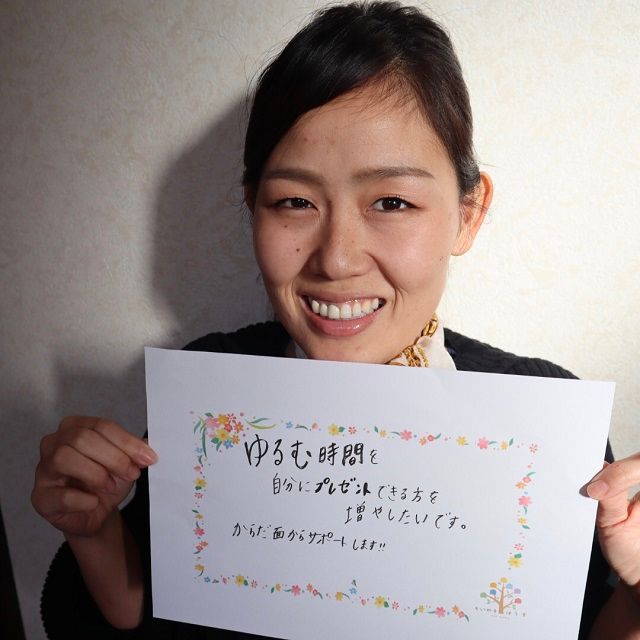 ゆるむ時間を
自分にプレゼントできる方を
増やしたいです。
からだ面からサポートします!!